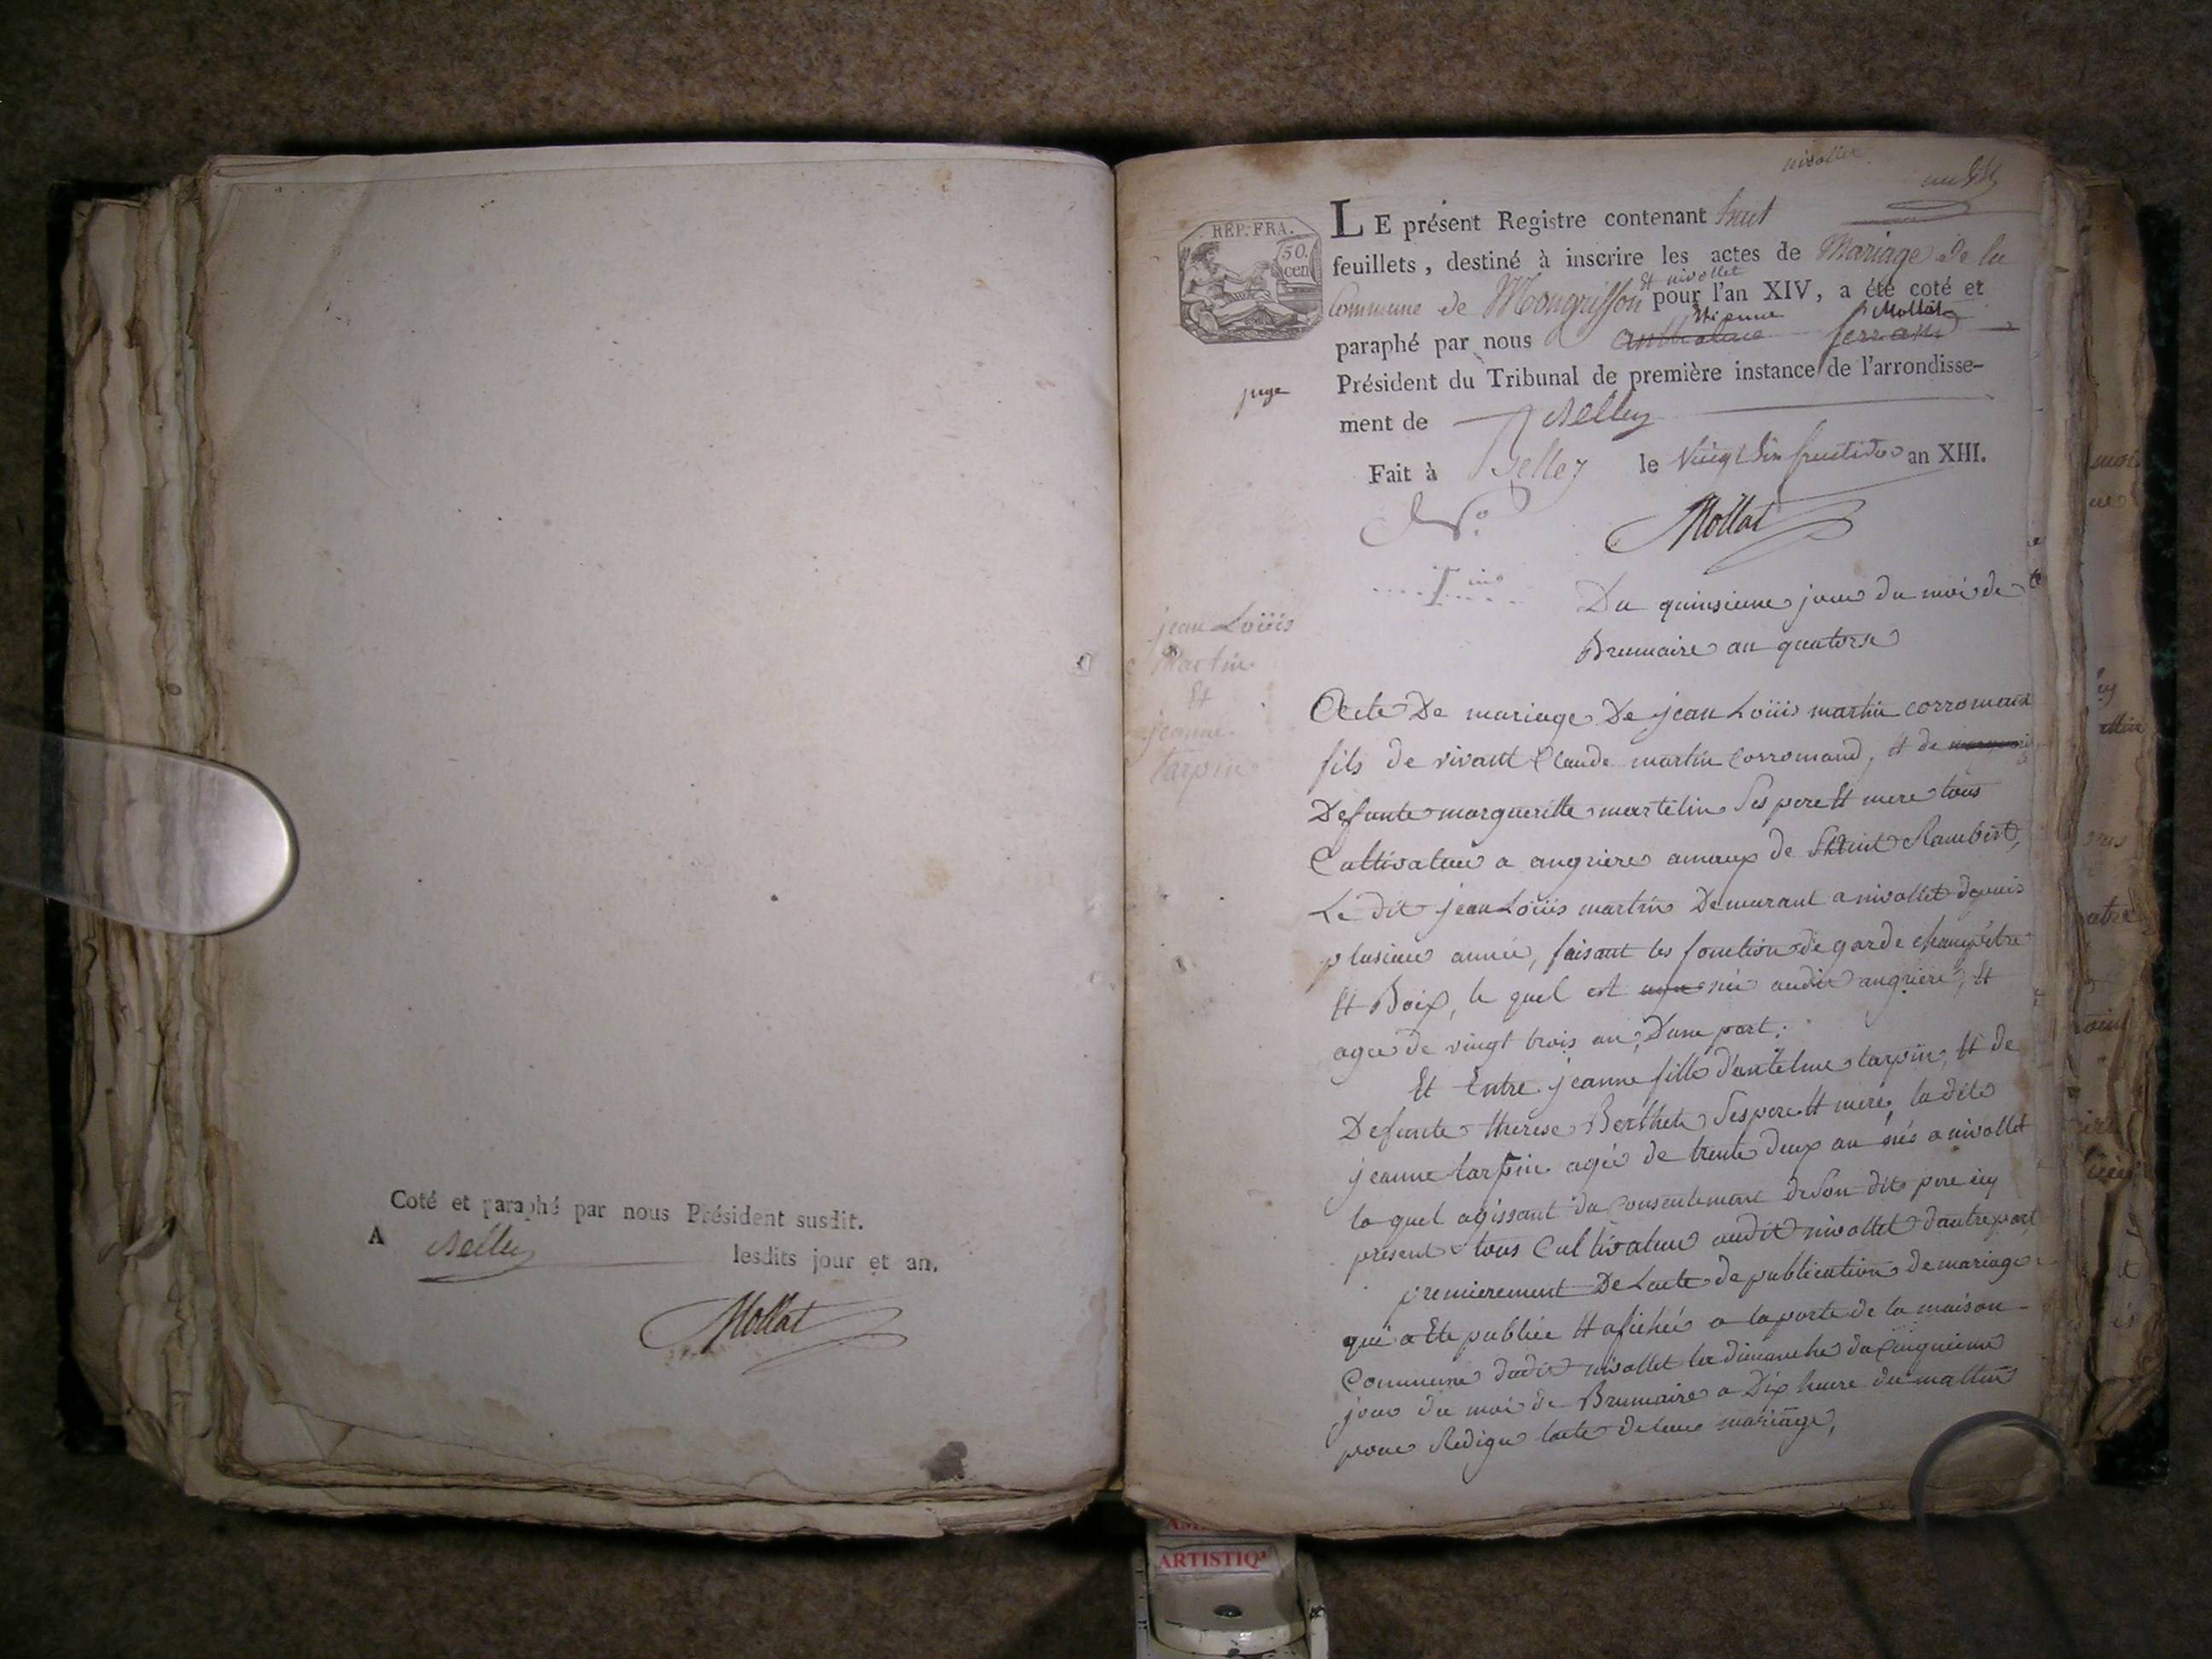 Coté et paraphé par nous Président susdit.
A Belley lesdits jour et an.
Mollat
nivollet
REP. FRA.
50.
cen
LE présent Registre contenant huit
feuillets, destiné à inscrire les actes de Mariage de la
Et nivollet
Commune de Mongriffon pour l'an XIV, a été coté et
Etienne Mollat
paraphé par nous anthelme ferrand
juge
Président du Tribunal de première instance de l'arrondisse-
ment de Belley
Fait à Belley le Vingt Six fructidor an XIII.
Mollat
jean Loüis
Martin
Et
jeanne
tarpin
Du quinsieme jour du moi de
Brumaire an quatorse
Acte De mariage De jean Loüis martin corromand
fils de vivant Claude martin Corromand, Et de
Defunte margueritte martelin Ses pere Et mere tous
Cultivateur a angriere amaux de Saint Rambert,
Le dit jean Loüis martin Demurant a nivollet depuis
plusieur année, faisant les fonction de garde champêtre
Et Boix, le quel est né audit angriere, Et
agée de vingt trois an, D'une part;
Et Entre jeanne fille d'antelme tarpin, Et de
Defunte therese Berthet Ses pere Et mere, la dite
jeanne tarpin agée de trente deux an née a nivollet
la quel agissant du Consentement de Son dit pere icy
présent tous Cultivateur audit nivollet d'autre part
premierement De Lacte de publication de mariage
qui a Ete publiée Et afichée a la porte de la maison
Commune dudit nivollet le dimanche du Cinquieme
jour du moi de Brumaire a Dix heure du mattin
pour Rediger lacte de leur mariage,
AM
ARTISTIQ